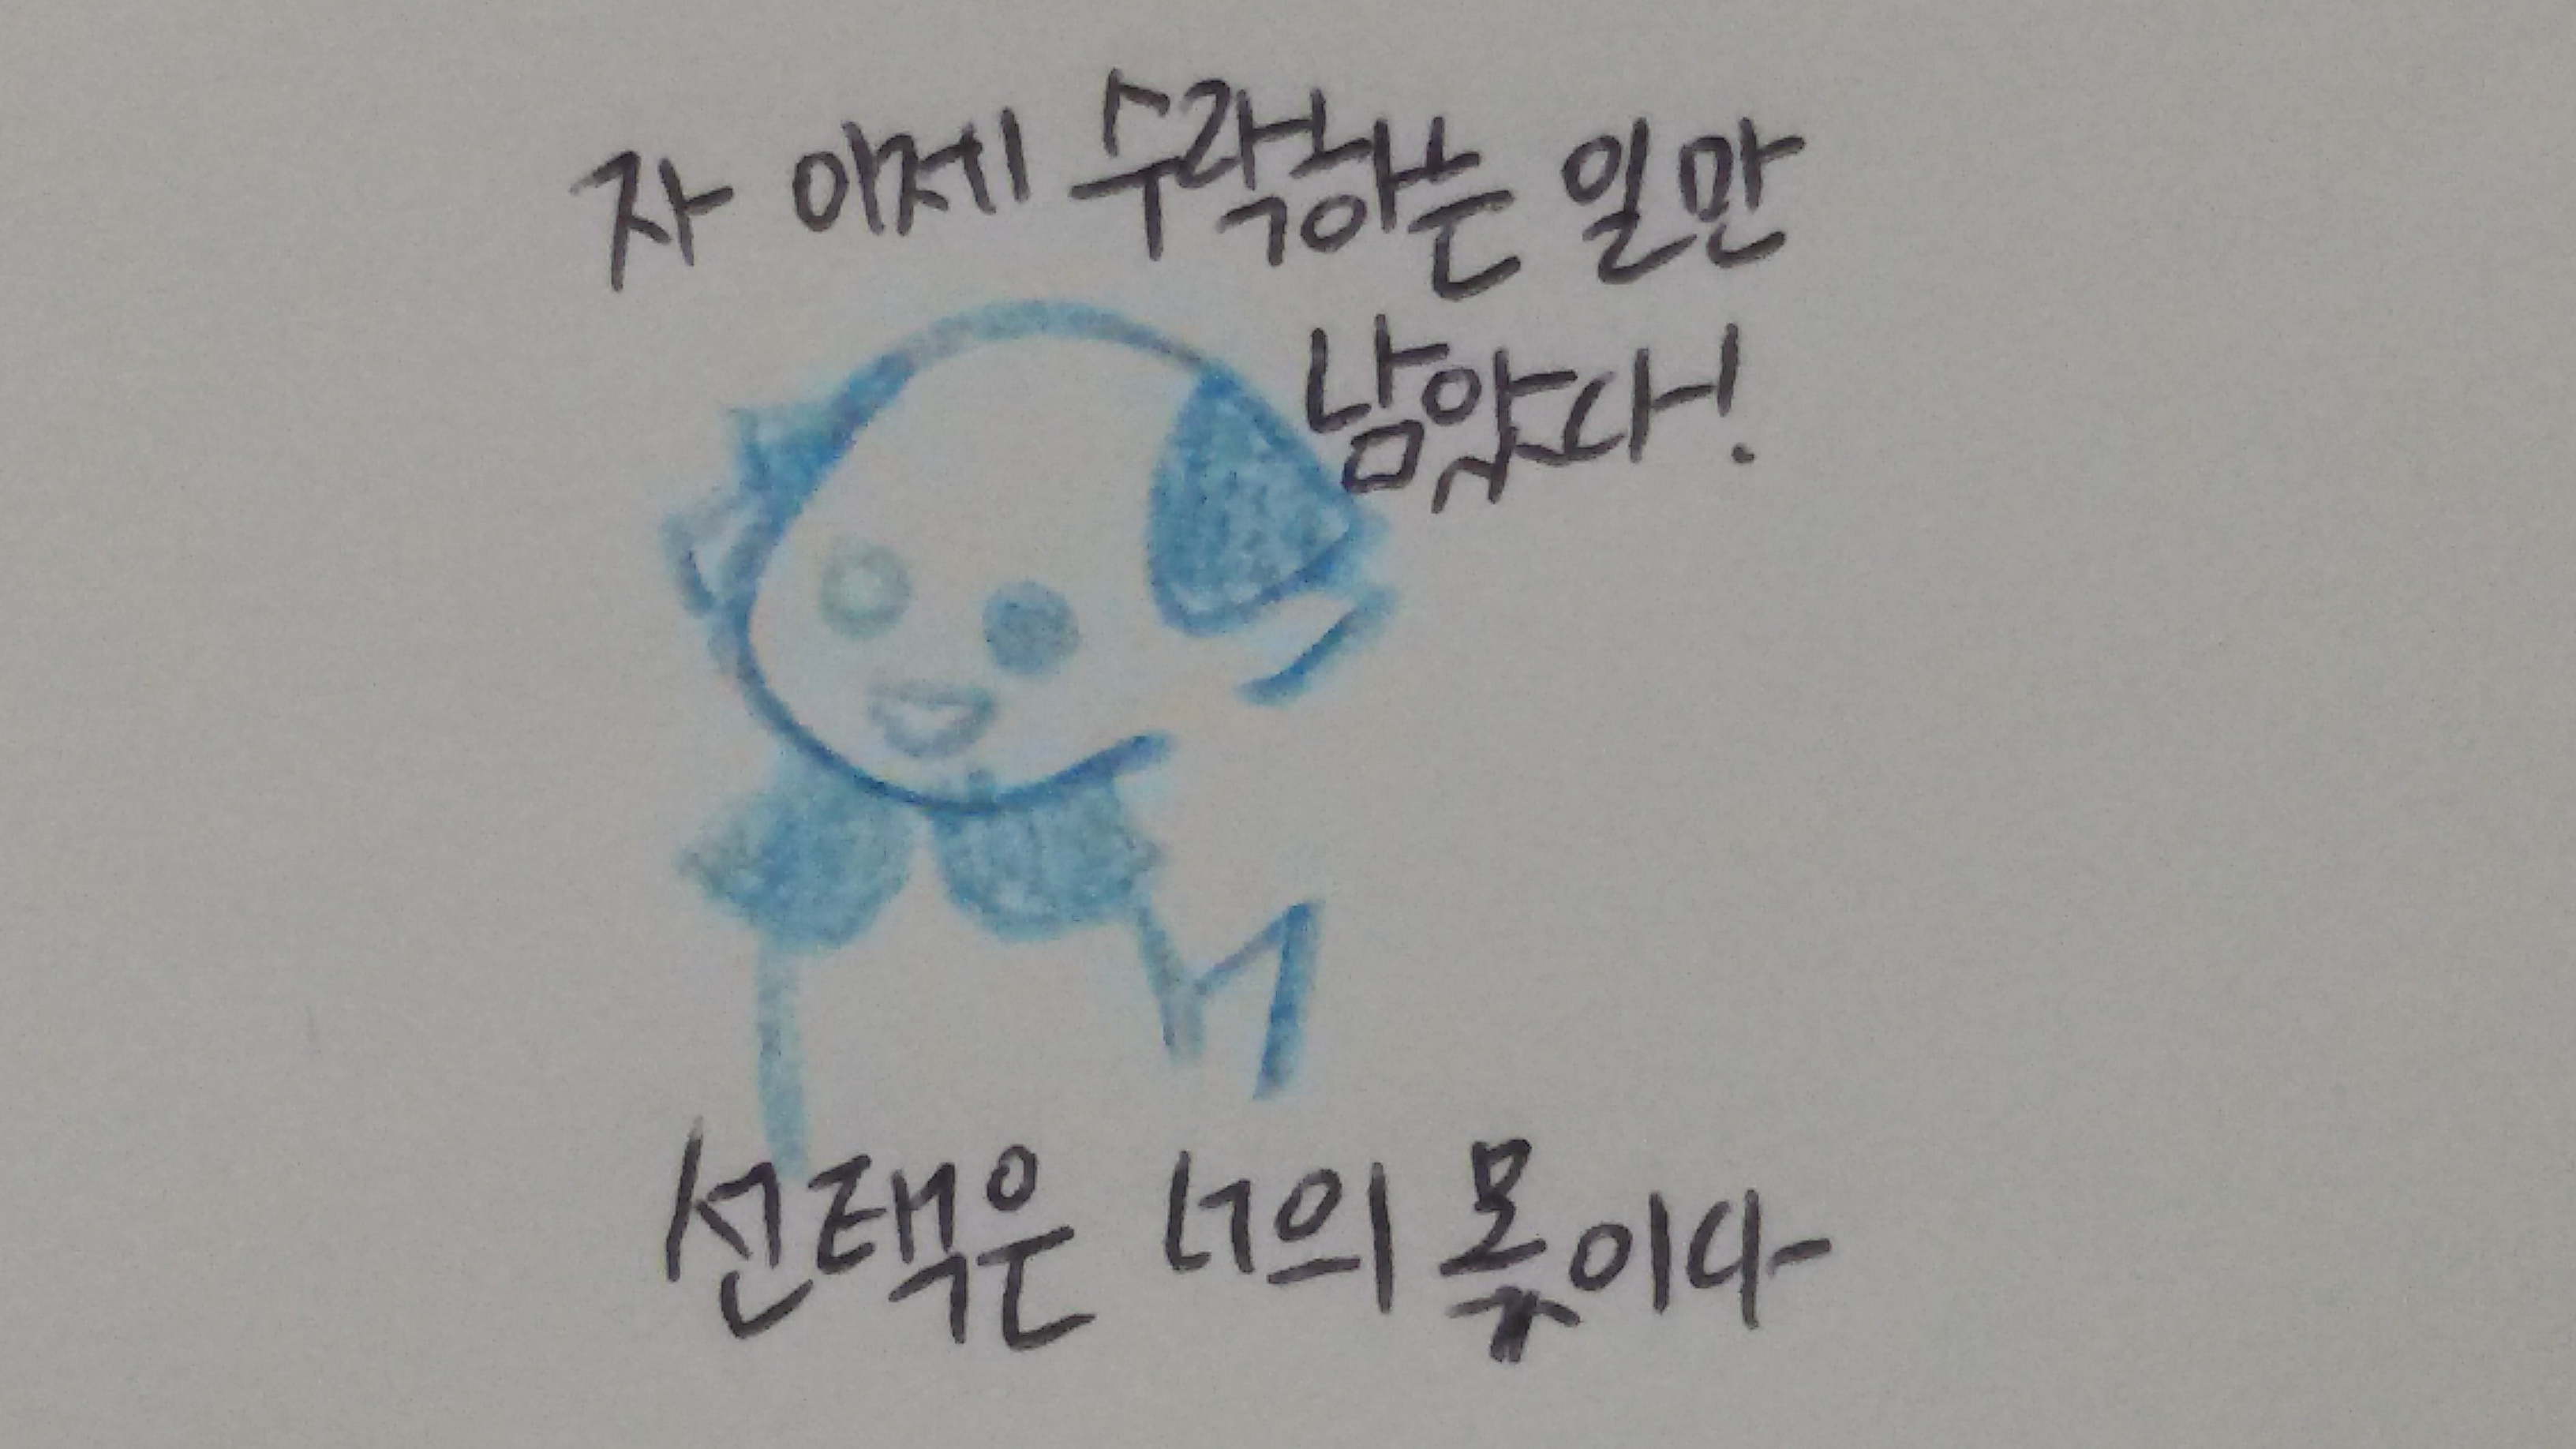 자 이제 수락하는 일만
남았다!
선택은 너의 몫이다